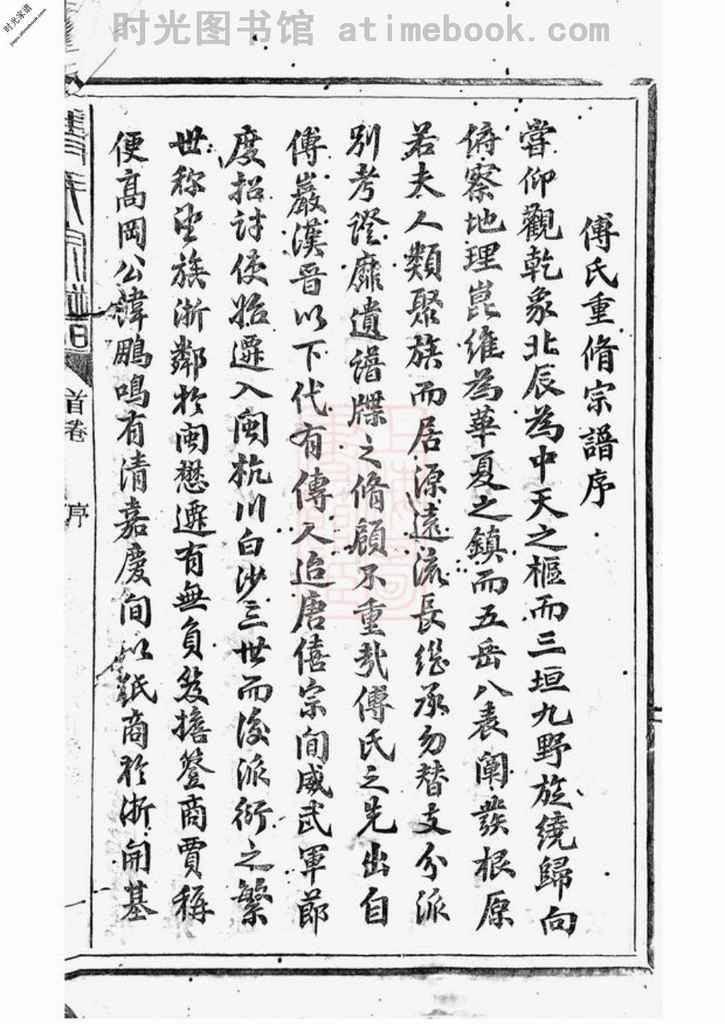 时光图书馆 atimebook.com
时光家谱
傅氏重脩宗譜序
嘗仰觀乾象北辰為中天之樞而三垣九野旋繞歸向
俯察地理崑維為華夏之鎮而五岳八表闡發根原
若夫人類聚族而居源遠流長継承勿替支分派
別考證靡遺譜牒之脩顧不重哉傅氏之先出自
傅巖漢晉以下代有傳人迨唐僖宗间威武軍節
度招討使始遷入閩杭川白沙三世而後派衍之繁
世称望族浙鄰扵閩懋遷有無負笈擔簦商賈稱
便髙岡公諱鵬鳴有清嘉慶间以纸商於浙開基
首卷
序
一